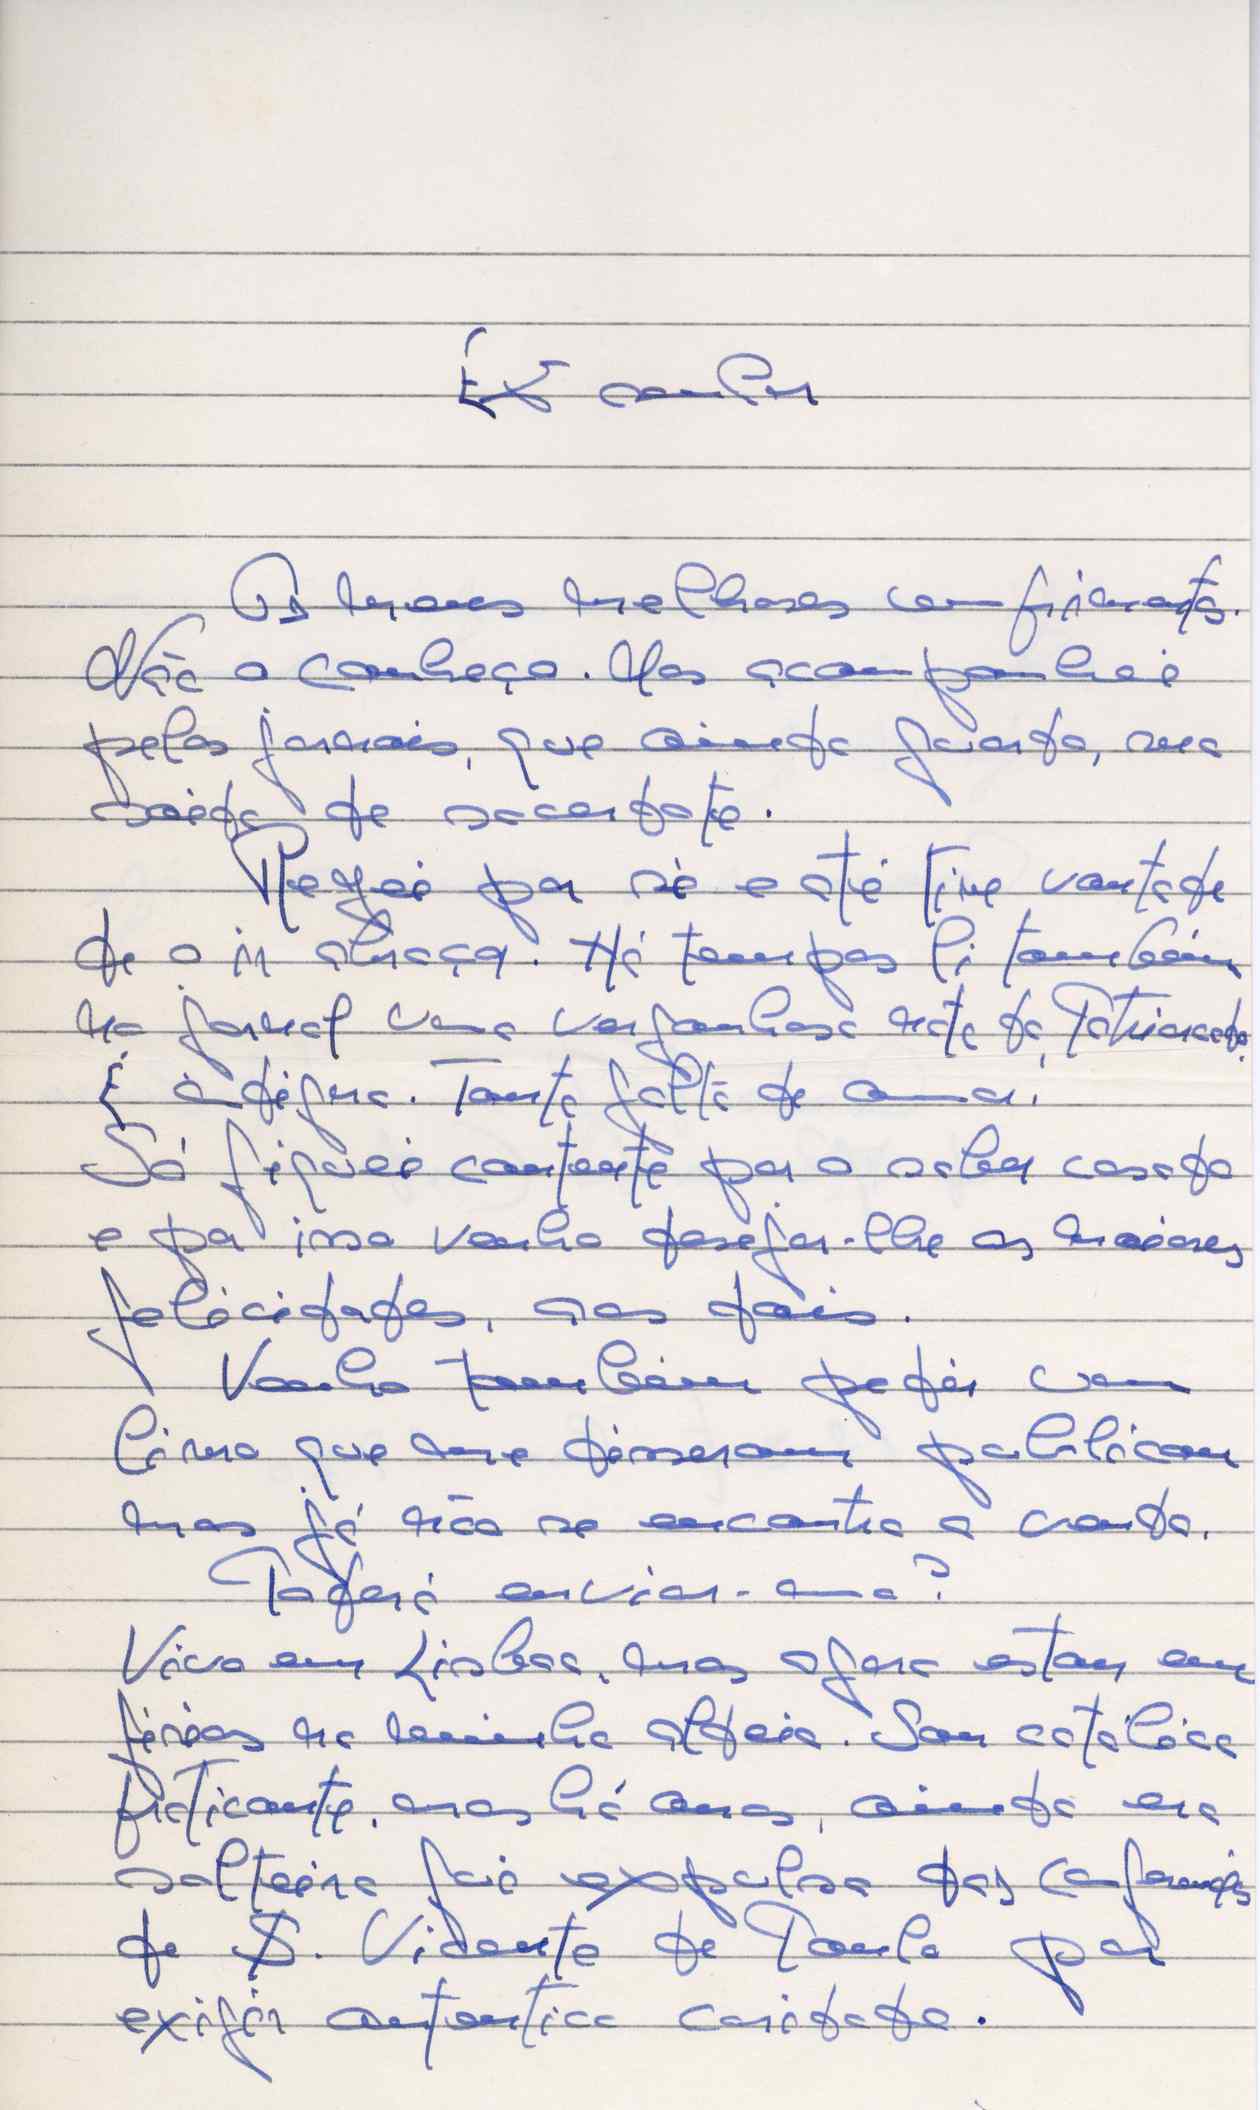 Ex.mo senhor
Os meus melhores cumprimentos.
Não o conheço. Mas acompanhei
pelos jornais, que ainda guardo, sua
saída de sacerdote.
Rezei por si e até tive vontade
de o ir abraçar. Há tempos li também
no jornal uma vergonhosa nota do Patriarcado.
É indigna. Tanta falta de amor!
Só fiquei contente por o saber casado
e por isso venho desejar-lhe as maiores
felicidades, aos dois.
Venho também pedir um
livro que me disseram publicou
mas já não se encontra a venda.
Poderá enviar-mo?
Vivo em Lisboa, mas agora estou em
férias na minha aldeia. Sou católica
praticante, mas há anos, ainda era
solteira fui expulsa das Conferências
de S. Vicente de Paulo por
exigir autentica caridade.